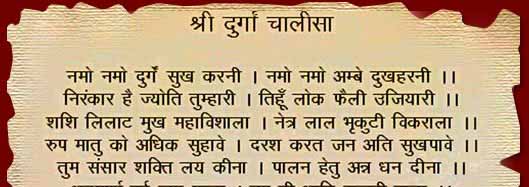 श्री दुर्गा चालीसा
नमो नमो दुर्गे सुख करनी । नमो नमो अम्बे दुखहरनी ।।
निरंकार है ज्योति तुम्हारी । तिहूँ लोक फैली उजियारी ।।
शशि लिलाट मुख महाविशाला । नेत्र लाल भृकुटी विकराला ।।
रुप मातु को अधिक सुहावे । दरश करत जन अति सुखपावे ।।
तुम संसार शक्ति लय कीना । पालन हेतु अन्न धन दीना ।।